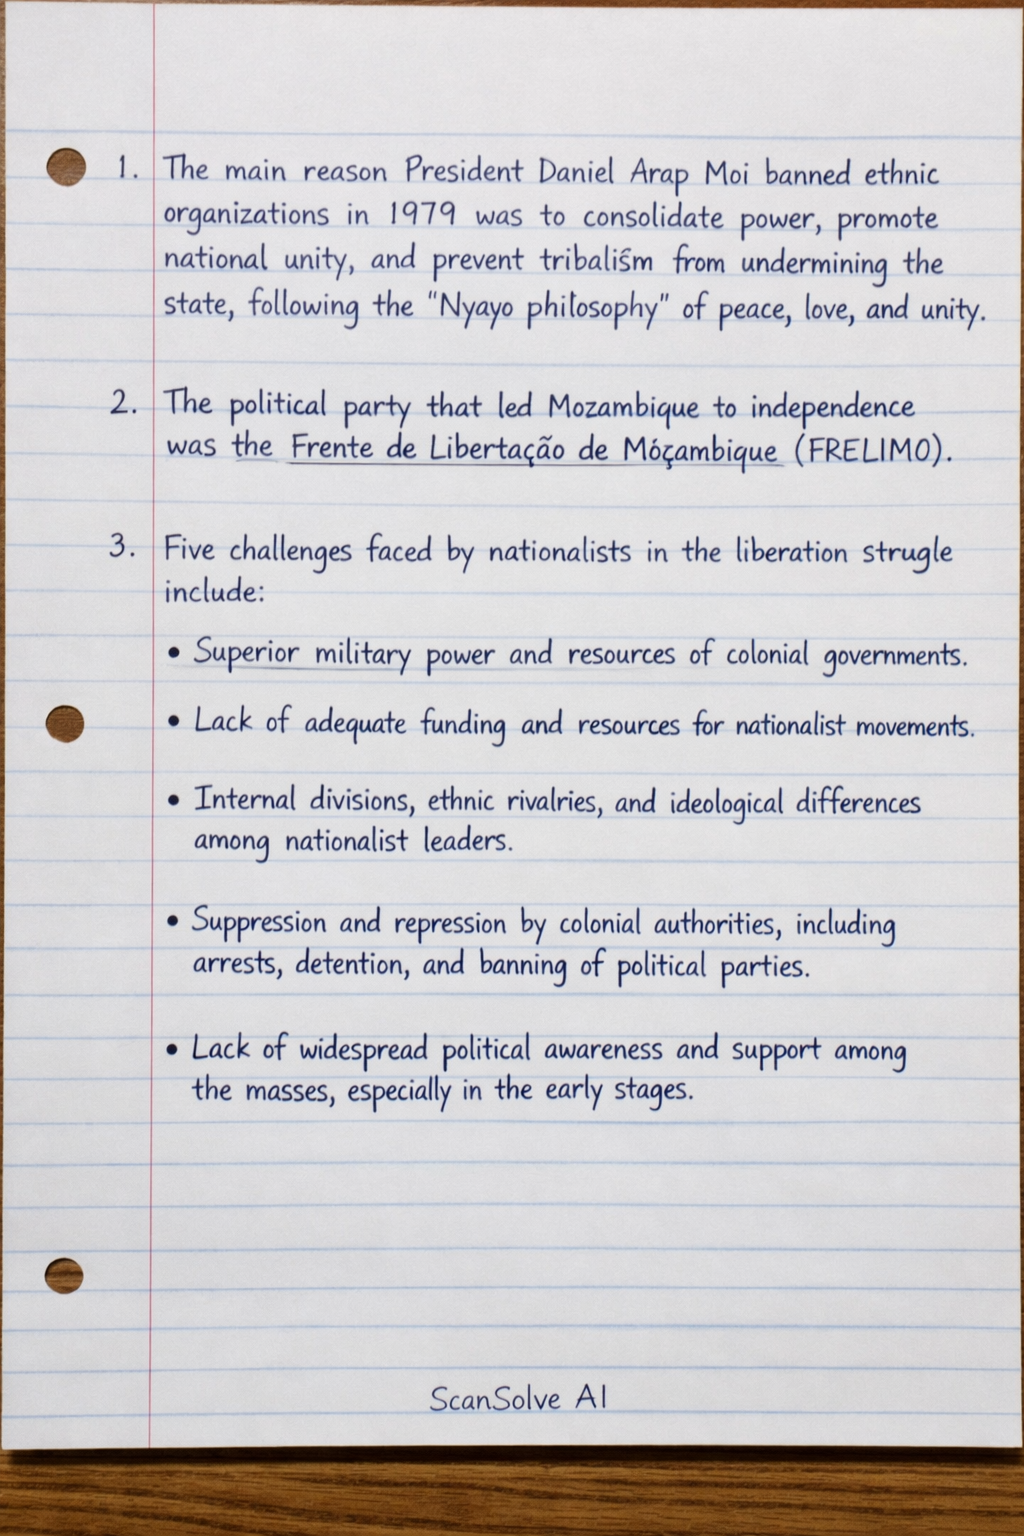 1. The main reason President Daniel Arap Moi banned ethnic
organizations in 1979 was to consolidate power, promote
national unity, and prevent tribalism from undermining the
state, following the "Nyayo philosophy" of peace, love, and unity.
2. The political party that led Mozambique to independence
was the Frente de Libertação de Móçambique (FRELIMO).
3. Five challenges faced by nationalists in the liberation strugle
include:
• Superior military power and resources of colonial governments.
• Lack of adequate funding and resources for nationalist movements.
• Internal divisions, ethnic rivalries, and ideological differences
among nationalist leaders.
• Suppression and repression by colonial authorities, including
arrests, detention, and banning of political parties.
• Lack of widespread political awareness and support among
the masses, especially in the early stages.
ScanSolve AI